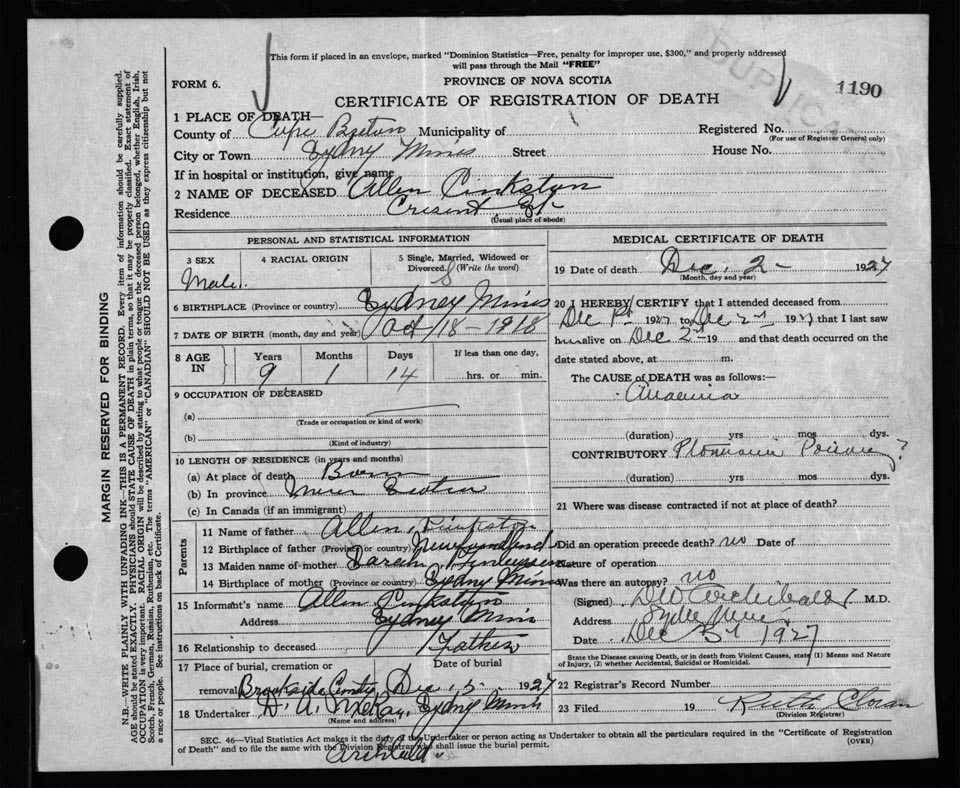 This form if placed in an envelope, marked "Dominion Statistics—Free, penalty for improper use, $300," and properly addressed
will pass through the Mail "FREE"
FORM 6.
PROVINCE OF NOVA SCOTIA
DUPLICATE
1190
CERTIFICATE OF REGISTRATION OF DEATH
1 PLACE OF DEATH—
County of Cape Breton Municipality of
Registered No.
(For use of Registrar General only)
City or Town Sydney Mines Street House No.
If in hospital or institution, give name
2 NAME OF DECEASED Allen Pinkston
Residence Cresint St.
(Usual place of abode)
PERSONAL AND STATISTICAL INFORMATION
3 SEX
Male.
4 RACIAL ORIGIN
5 Single, Married, Widowed or
Divorced. (Write the word)
S
6 BIRTHPLACE (Province or country) Sydney Mines
7 DATE OF BIRTH (month, day and year) Oct 18 - 1918
8 AGE IN
Years Months Days
9 1 14
If less than one day,
hrs. or min.
9 OCCUPATION OF DECEASED
(a)
(Trade or occupation or kind of work)
(b)
(Kind of industry)
10 LENGTH OF RESIDENCE (in years and months)
(a) At place of death Born
(b) In province Nova Scotia
(c) In Canada (if an immigrant)
Parents
11 Name of father Allen Pinkston
12 Birthplace of father (Province or country) Newfoundland
13 Maiden name of mother
14 Birthplace of mother (Province or country) Sydney Mines
15 Informant's name Allen Pinkston
Address Sydney Mines
16 Relationship to deceased Father
17 Place of burial, cremation or
removal Brookside Cemty
Date of burial
Dec. 5 1927
18 Undertaker D. A. McKay, Sydney Mines
(Name and address)
MEDICAL CERTIFICATE OF DEATH
19 Date of death Dec. 2 - 1927
(Month, day and year)
20 I HEREBY CERTIFY that I attended deceased from
Dec 1st 1927 to Dec 2nd 1927 that I last saw
him alive on Dec 2nd 19 and that death occurred on the
date stated above, at m.
The CAUSE of DEATH was as follows:—
Anaemia
(duration) yrs mos dys.
CONTRIBUTORY Ptomaine Poisoning?
(duration) yrs mos dys.
21 Where was disease contracted if not at place of death?
Did an operation precede death? no Date of
Nature of operation
Was there an autopsy? no
(Signed) DW Archibald M.D.
Address Sydney Mines
Date Dec 3rd 1927
State the Disease causing Death, or in death from Violent Causes, state (1) Means and Nature
of Injury, (2) whether Accidental, Suicidal or Homicidal.
22 Registrar's Record Number
23 Filed 19 Ruth
(Division Registrar)
SEC. 46—Vital Statistics Act makes it the duty of the Undertaker or person acting as Undertaker to obtain all the particulars required in the "Certificate of Registration
of Death" and to file the same with the Division Registrar who shall issue the burial permit.
(OVER)
Archibald
MARGIN RESERVED FOR BINDING
N.B.—WRITE PLAINLY WITH UNFADING INK—THIS IS A PERMANENT RECORD. Every item of information should be carefully supplied.
AGE should be stated EXACTLY. PHYSICIANS should STATE CAUSE OF DEATH in plain terms, so that it may be properly classified. Exact statement of
OCCUPATION is very important. RACIAL ORIGIN will be described by stating to what people or tongue the deceased person belonged, whether English, Irish,
Scotch, French, German, Russian, Ruthenian, etc. The terms "AMERICAN" or "CANADIAN" SHOULD NOT BE USED as they express citizenship but not
a race or people. See instructions on back of Certificate.